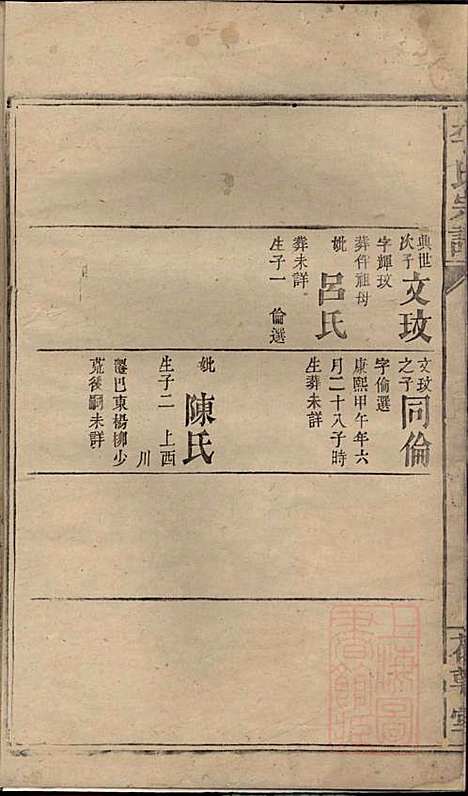 典世
次子
文玟
字輝玟
葬祖母
妣
呂氏
葬未詳
生子一 倫選
文玟
之子
同倫
字倫選
康熙甲午年六
月二十八子時
生葬未詳
妣
陳氏
生子二 上西
川
巴東楊柳少
荒後嗣未詳
氏宗譜
堂
上海圖
書館